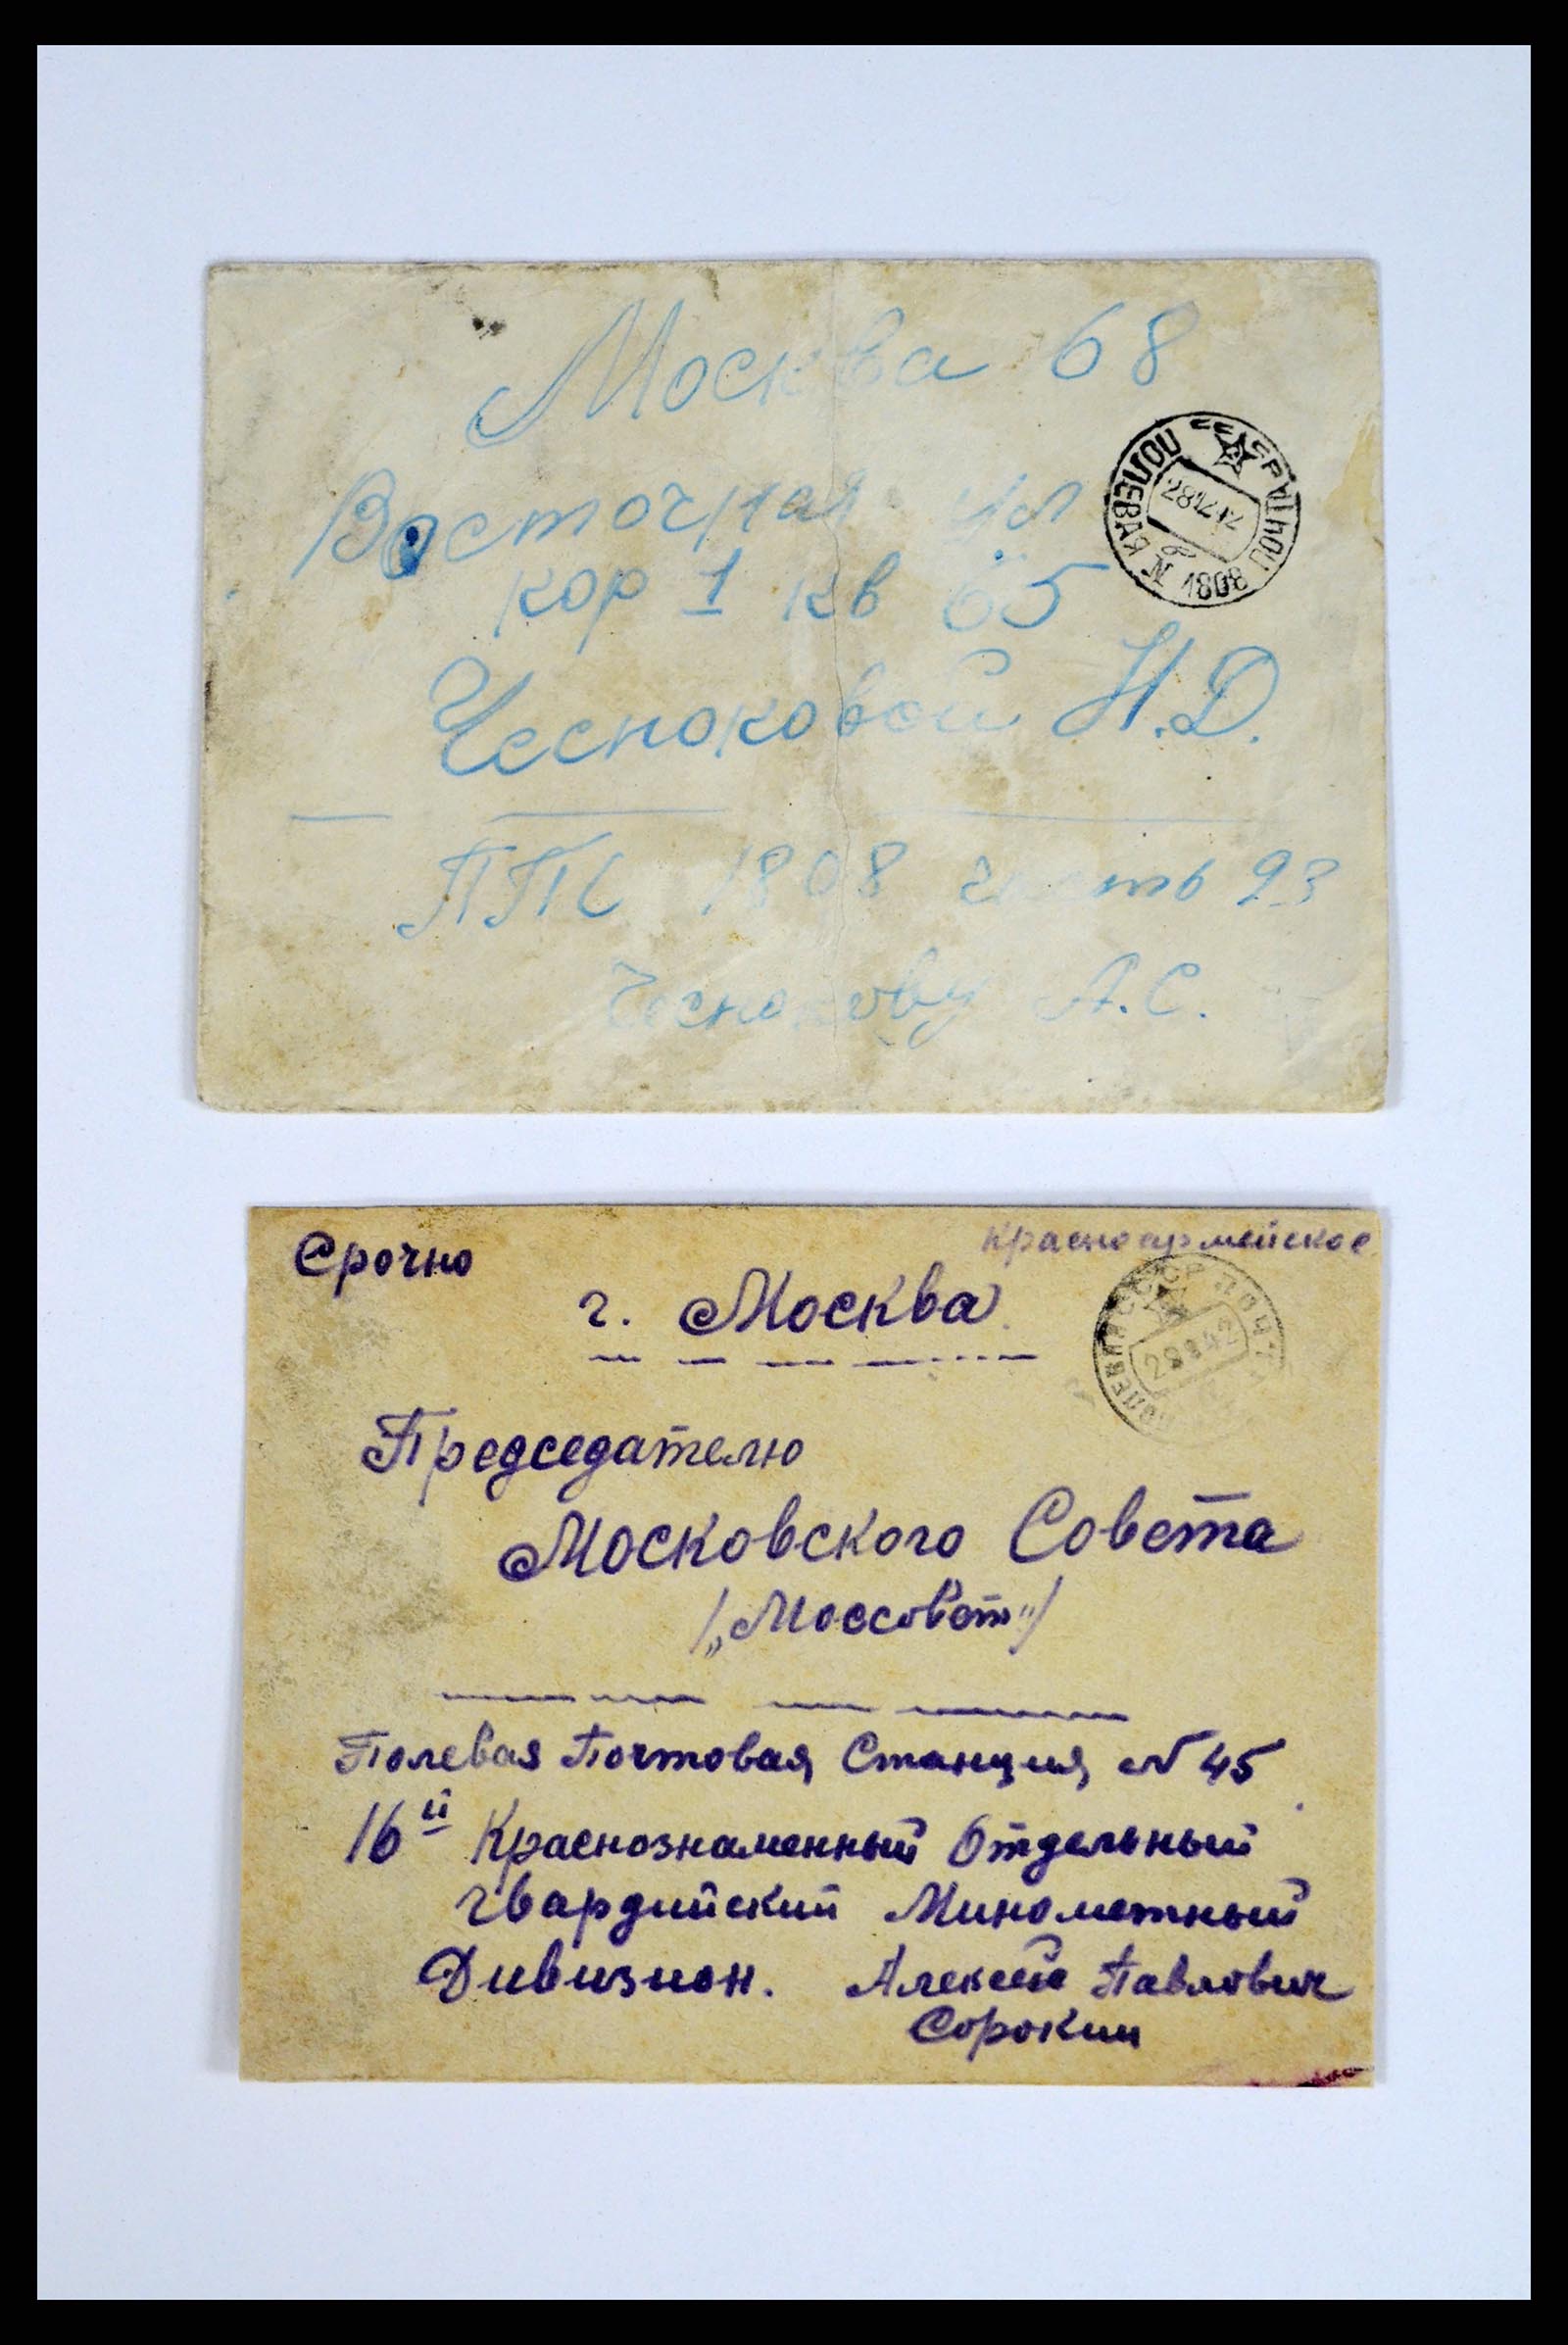 Москва 68
Восточная ул
кор 1 кв 65
Чесноковой Н.Д.
ППС 1808 часть 93
Чеснокову А.С.
СССР ПОЧТА
ПОЛЕВАЯ N 1808
Срочно
Красноармейское
г. Москва
СССР ПОЧТА
ПОЛЕВАЯ
42
Председателю
Московского Совета
/„Моссовет"/
Полевая Почтовая Станция N 45
16й Краснознаменный Отдельный
гвардийский Минометный
Дивизион. Алексей Павлович
Сорокин